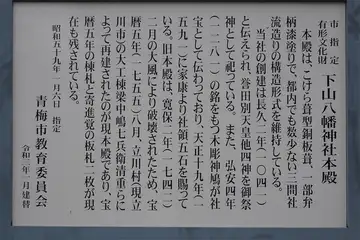 市指定
有形文化財
下山八幡神社本殿
本殿は、こけら葺型銅板葺、一部弁
柄漆塗りで、都内でも数少ない三間社
流造りの構造形式を維持している。
当社の創建は長久二年(一〇四一)
と伝えられ、誉田別天皇他四神を御祭
神として祀っている。また、弘安四年
(一二八一)の銘をもつ木彫神鳩が社
宝として伝わっており、天正十九年(一
五九一)に家康より社領五石を賜って
いる。旧本殿は、寛保二年(一七四二)
二月の大風により破壊されたため、宝
暦五年(一七五五)八月、立川村(現立
川市)の大工棟梁中嶋七兵衛清重らに
よって再建されたのが現本殿であり、宝
暦五年の棟札と寄進覚の板札二枚が現
在も残されている。
昭和五十九年一月六日 指定
青梅市教育委員会
令和二年二月建替